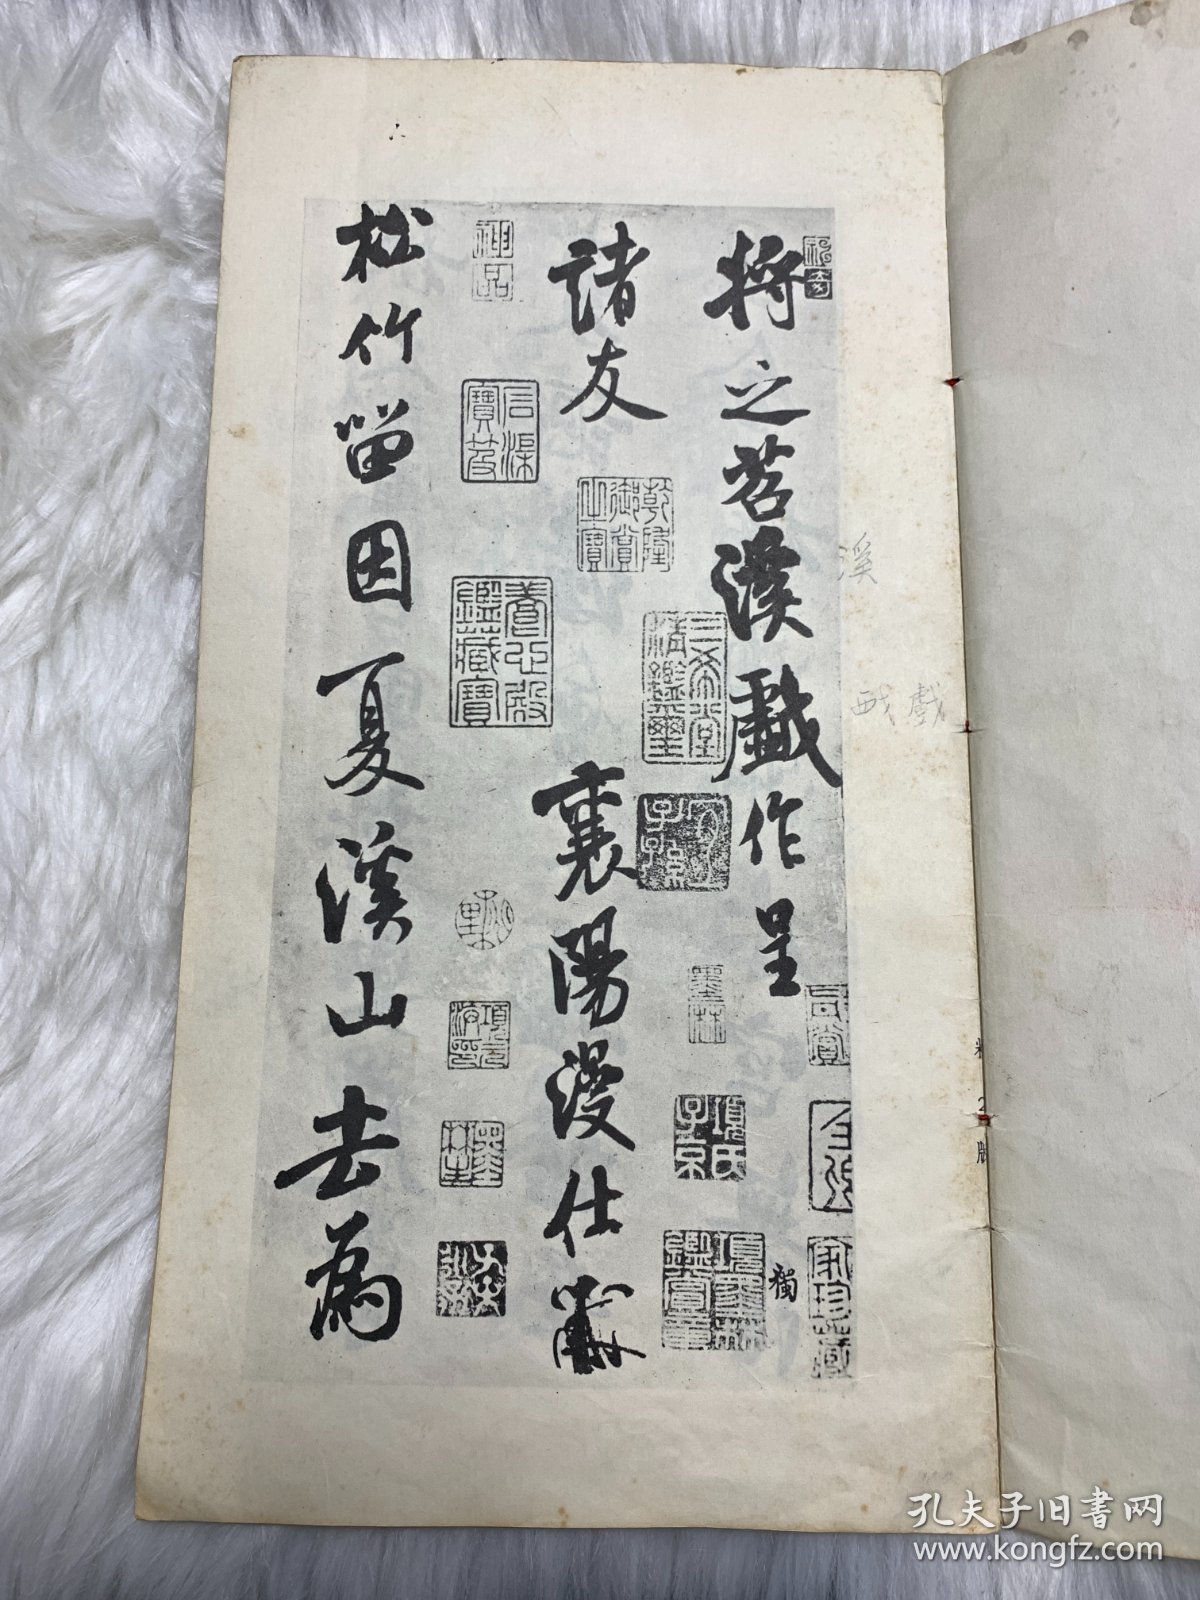 将之苕溪戯作呈
諸友
襄陽漫仕黻
松竹留因夏溪山去為
神品
石渠寶笈
乾隆御賞之寶
養心殿鑑藏寶
三希堂精鑑璽
宜子孫
墨林
項氏子京
項墨林鑑賞章
獨
家珍藏
溪
戏戲
2
版
孔夫子旧书网
www.kongfz.com